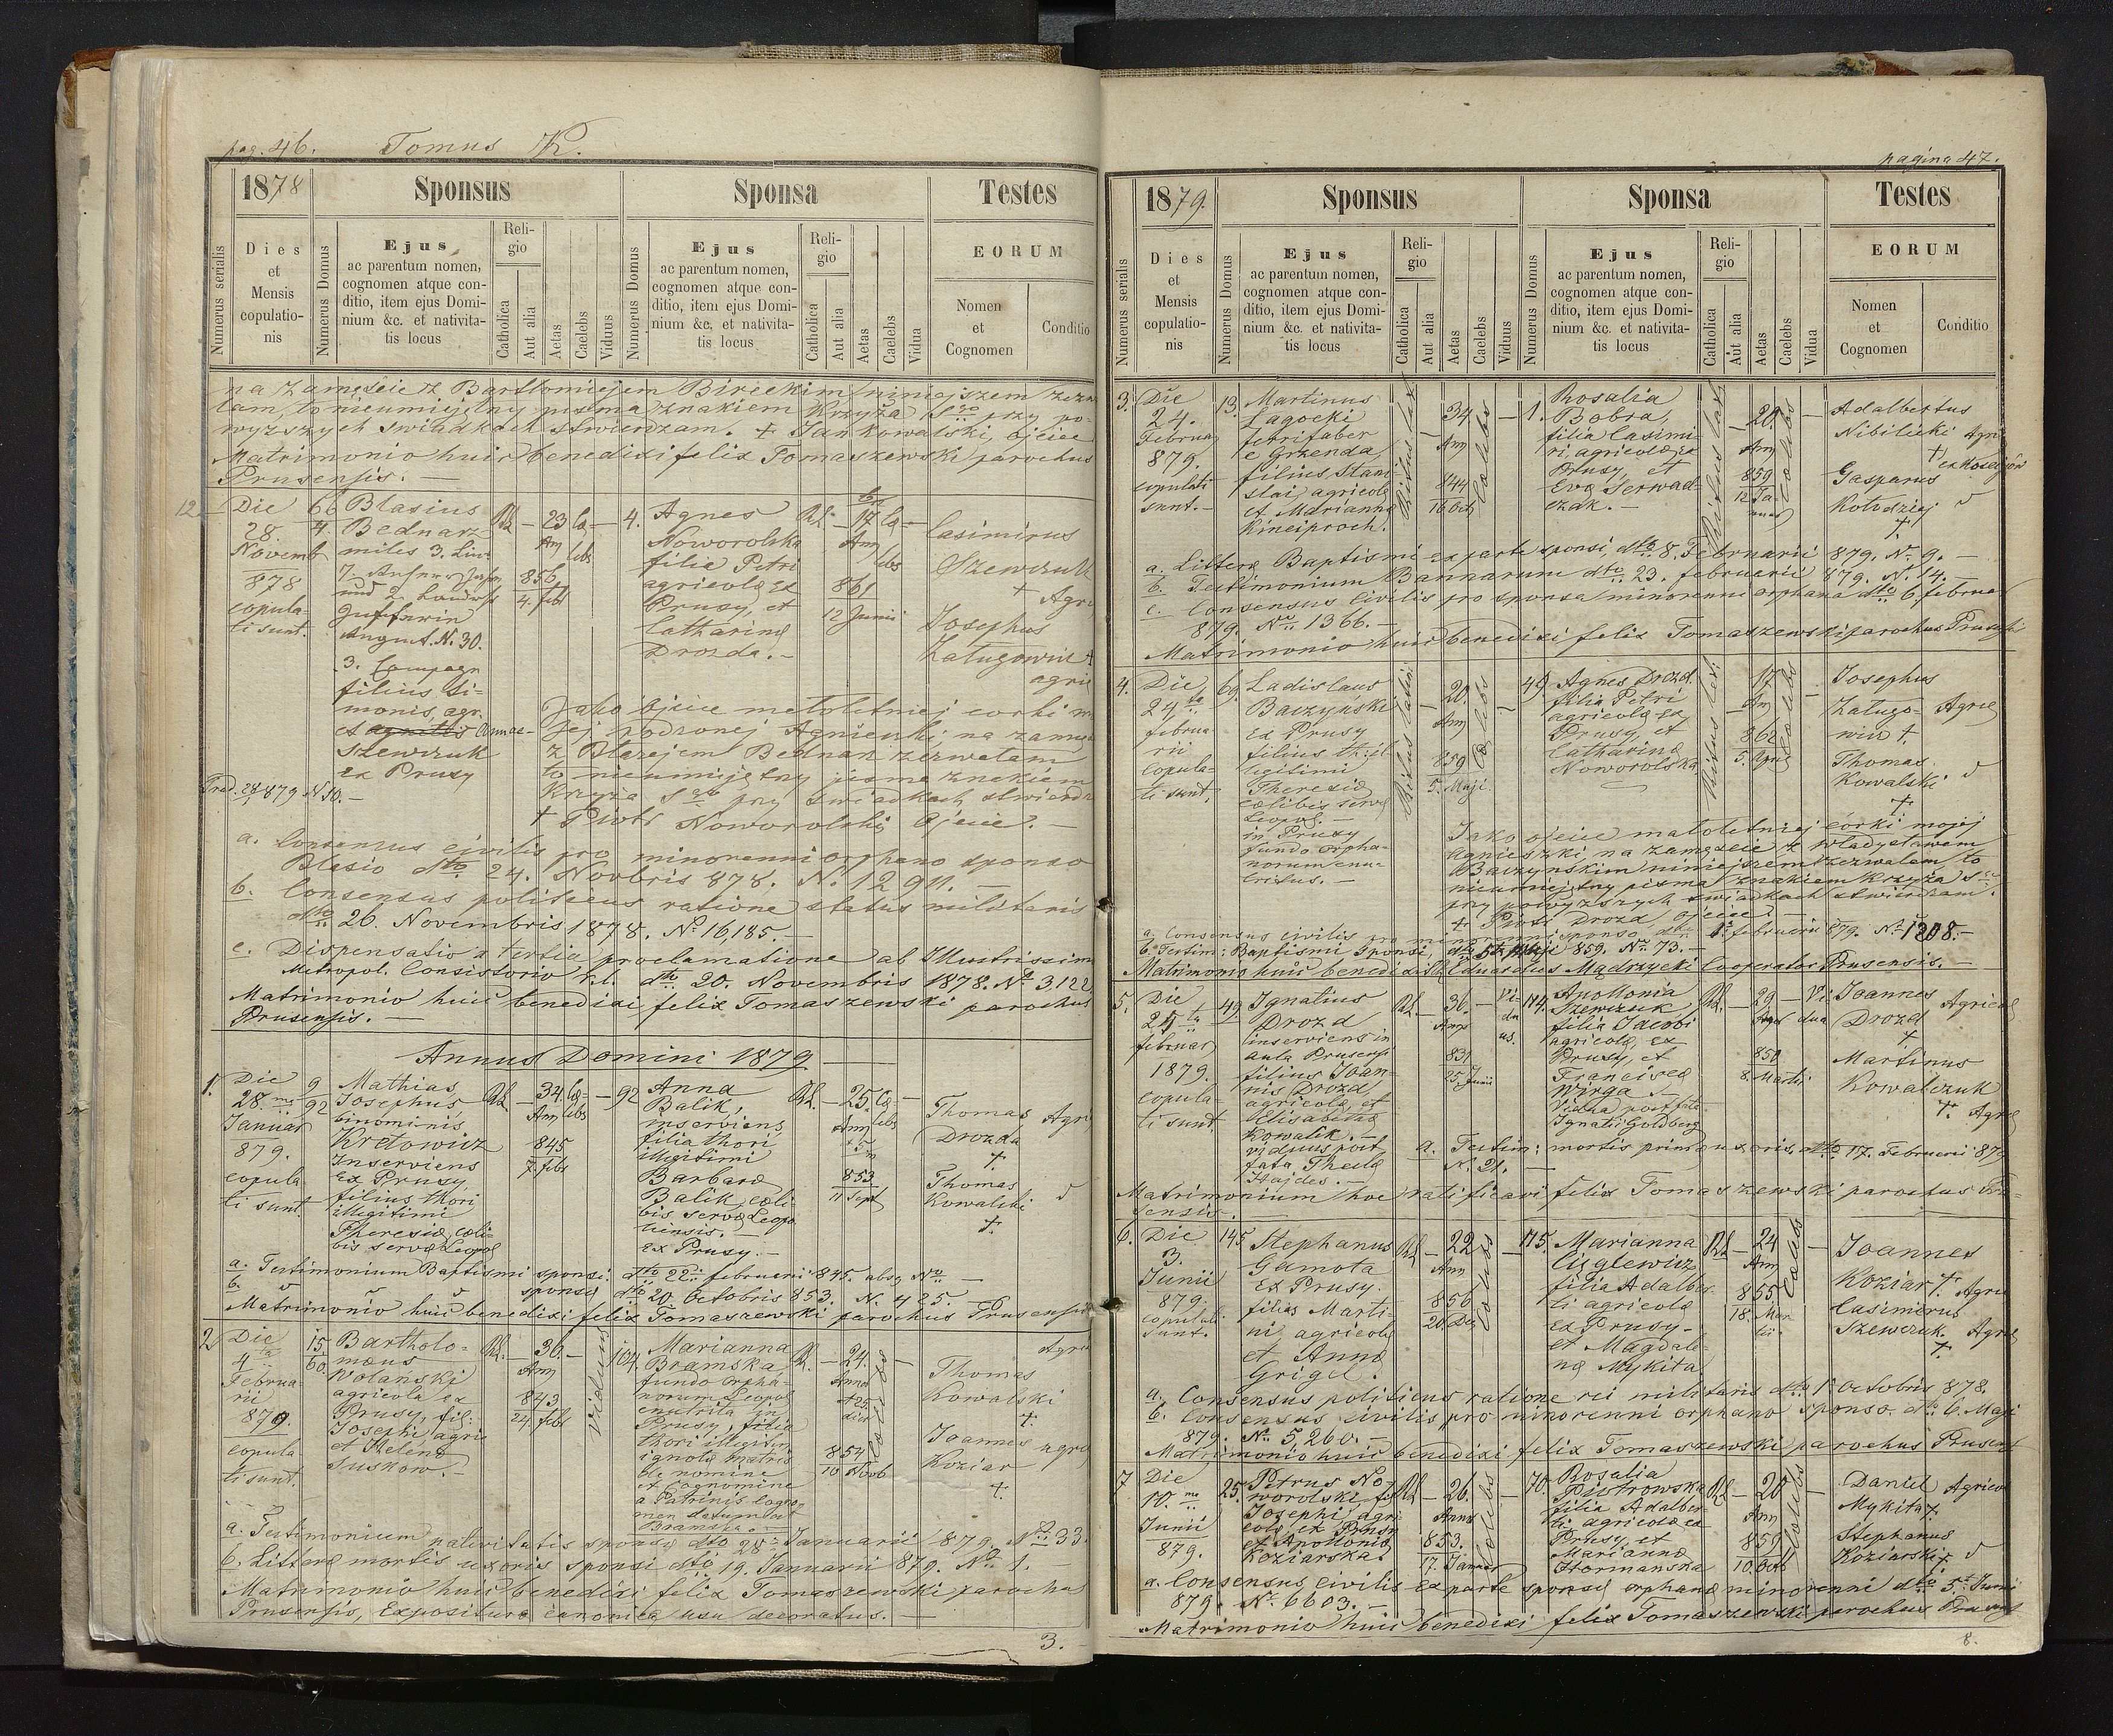 pag. 46. Tomus IV.
1878 Sponsus Sponsa Testes
Numerus serialis
Dies et Mensis copulationis
Numerus Domus
Ejus ac parentum nomen, cognomen atque conditio, item ejus Dominium &c. et nativitatis locus
Religio
Catholica
Aut alia
Aetas
Caelebs
Viduus
Numerus Domus
Ejus ac parentum nomen, cognomen atque conditio, item ejus Dominium &c. et nativitatis locus
Religio
Catholica
Aut alia
Aetas
Caelebs
Vidua
EORUM
Nomen et Cognomen
Conditio
na zamęście z Bartłomiejem Bireckim niniejszem
tam, to nieumiejętny pisma znakiem Krzyża Sgo przy po-
wyższych świadkach stwierdzam. + Jan Kowalski, ojciec
Matrimonio huic benedixi felix Tomaszewski parochus
Prusensis. —
12.
Die
28.
Novemb
878
copula-
ti sunt.
66
4
Blasius
Bednarz
miles 3. Lin.
August. N. 30.
3. Compagn
filius Si-
monis, agr.
et Annae
Szewczuk
ex Prusy
23
Ann
856
4. feb
4.
Agnes
Noworolska
filia Petri
agricolæ ex
Prusy, et
Catharinæ
Drozda. —
17
Ann
861
12 Junii
Casimirus
Szewczuk
+ Agri
Josephus
Załugowin +
agric
Jako ojciec małoletniej corki mo
jej rodzonej Agnieszki na zamę
z Błażejem Bednarz zezwalam
to nieumiejętny pisma znakiem
Krzyża Sgo przy świadkach stwierdz
+ Piotr Noworolski Ojciec. —
a. Consensus civilis pro minorenni orphano sponso
Blasio dto 24. Novbris 878. N. 12911. —
b. Consensus politicus ratione status militaris
dto 26. Novembris 1878. No 16,185. —
c. Dispensatio a tertia proclamatione ab Illustrissim
Metropol. Consistorio r.l. dto 20. Novembris 1878. No 3122
Matrimonio huic benedixi felix Tomaszewski parochus
Prusensis. —
Annus Domini 1879.
1.
Die
28.
Januar
879.
copula
ti sunt.
9
92
Mathias
Josephus
binominis
Kretowicz
Inserviens
ex Prusy
filius thori
illegitimi
Theresiæ, cæli-
bis servæ Leopol
34.
Ann
845
7. febr
92
Anna
Balik,
inserviens
filia thori
illegitimi
Barbaræ
Balik cæli-
bis servæ Leopo
liensis. —
ex Prusy. —
25
Ann
853
11 Sept
Thomas Agri
Drozda
+
Thomas
Kowalski
+
a. Testimonium Baptismi sponsi: dto 22. februarii 845. absq No —
b. sponsæ dto 20. Octobris 853. N. 425. —
Matrimonio huic benedixi felix Tomaszewski parochus Prusensis
2.
Die
4
Februa
rii
879.
copula
ti sunt.
15.
60.
Bartholo-
mæus
Wolanski
agricola ex
Prusy, fil:
Josephi agric
et Helenæ
Suskow. —
36. —
Ann
843
24 feb
viduus
104.
Marianna
Bramska
fundo orpha-
norum Leopol
enutrita in
Prusy, filia
thori illegitim
ignotæ matris
de nomine
et Cognomine
a Patrinis Cogno-
men datum est
Bramska. —
24.
Anno
854
10 Novb
Cælebs
Agri
Thomas
Kowalski
+
Joannes agri
Koziar
+
a. Testimonium nativitatis sponsæ dto 28. Januarii 879. No 33.
b. Litteræ mortis uxoris sponsi dto 19. Januarii 879. No 1. —
Matrimonio huic benedixi felix Tomaszewski parochus
Prusensis, Expositura canonica usu decoratus. —
3.
pagina 47.
1879. Sponsus Sponsa Testes
Numerus serialis
Dies et Mensis copulationis
Numerus Domus
Ejus ac parentum nomen, cognomen atque conditio, item ejus Dominium &c. et nativitatis locus
Religio
Catholica
Aut alia
Aetas
Caelebs
Viduus
Numerus Domus
Ejus ac parentum nomen, cognomen atque conditio, item ejus Dominium &c. et nativitatis locus
Religio
Catholica
Aut alia
Aetas
Caelebs
Vidua
EORUM
Nomen et Cognomen
Conditio
3.
Die
24.
Februa
879.
copulati
sunt. —
13.
Martinus
Łagocki
ferrifaber
e Grzenda,
filius Stani
slai, agricolæ
et Mariannæ
Kinciproch.
34
Ann
844
16 Oct
Cælebs
1.
Rosalia
Bobra,
filia Casimi-
ri, agricolæ ex
Prusy, et
Eva Serwad-
czak. —
20.
Ann
859
12 Ja-
nuar
Cælebs
Adalbertus
Nibilicki Agri
+
Gasparus
Kołodziej
+
a. Litteræ Baptismi ex parte sponsi, dto 8. Februarii 879. No 9. —
b. Testimonium Bannarum dto 23. februarii 879. N. 14. —
c. Consensus Civilis pro sponsa minorenni orphana dto 6. februar
879. No 1366. —
Matrimonio huic benedixi felix Tomaszewski parochus Prusensis
4.
Die
24
februa-
rii
copula-
ti sunt.
69.
Ladislaus
Baczyński
ex Prusy
filius th. il-
legitimi
Theresiæ
cælibis servæ
Leopol. —
in Prusy
fundo orpha-
norum enu-
tritus. —
Ritus latini
20.
Ann
859
5. Maji
Cælebs
49
Agnes Drozd
filia Petri
agricolæ ex
Prusy, et
Catharinæ
Noworolska
17
Ann
862
5. Apri
Cælebs
Josephus
Załugo- Agric
win +.
Thomas
Kowalski
+
Jako ojciec małoletniej córki mojej
Agnieszki, na zamęście z Władysławem
Baczynskim niniejszem zezwalam, to
nieumiejętny pisma znakiem Krzyża S
przy powyższych świadkach stwierdzam.
+ Piotr Drozd ojciec. —
a. Consensus civilis pro sponso dto februarii 879. No 1208. —
b. Testim: Baptismi Sponsi, Maji 859. No 73. —
Matrimonio huic benedixi Eduardus Mądrzycki Cooperator Prusensis. —
5.
Die
25
februar
1879.
copula-
ti sunt.
49
Ignatius
Drozd
inserviens in
aula Prusensi
filius Joan-
nis Drozd
agricolæ, et
Elisabethæ
Kowalik. —
viduus post
fata Theclæ
Hajdes. —
36. —
Ann
25 Junii
Vi-
du
us.
114.
Apollonia
Szewczuk
filia Jacobi
agricolæ, ex
Prusy, et
Francisca
Wirga. —
Vidua post fata
Ignatii Goldberg
29
850
8. Martii
Vi-
dua
Joannes Agricol
Drozd
+
Martinus
Kowalczuk
+. Agric
a. Testim: mortis primæ uxoris dto 17. Februarii 879
N. 21. —
Matrimonium hoc ratificavi felix Tomaszewski parochus Pru-
sensis.
6.
Die
3.
Junii
879.
copulati
sunt.
145
Stephanus
Gamota
ex Prusy.
filius Marti-
ni, agricolæ
et Annæ
Grigel.
22
Ann
856
Cælebs
115.
Marianna
Cuglewicz
filia Adalber
ti agricolæ
ex Prusy —
et Magdale-
næ Mykita
24
Ann
855
18. Mar
tii.
Cælebs
Joannes
Koziar +. Agric
Casimirus
Szewczuk. Agric
+.
a. Consensus politicus ratione rei militaris dto 1. Octobris 878.
b. Consensus civilis pro minorenni orphano sponso dto 6. Maji
879. No 5260. —
Matrimonio huic benedixi felix Tomaszewski parochus Prusens
7
Die
10.
Junii
879.
25.
Petrus No-
worolski, fil
Josephi, agri
colæ ex Prusy
et Apollonia
Koziarska.
26.
Anno
853.
17. Januar
Cælebs
70.
Rosalia
Piotrowska
filia Adalber-
ti agricolæ ex
Prusy, et
Marianna
Hormanska
20
Ann
859
10. Octb
Cælebs
Daniel Agricol
Mykita +.
Stephanus
Koziarski +.
a. Consensus civilis ex parte sponsæ orphanæ minorenni dto 5. Junii
879. No 6603. —
Matrimonio huic benedixi felix Tomaszewski parochus Prusens
8.